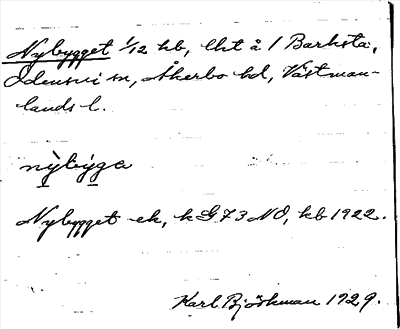 Nybygget 1/12 kb, lht å 1 Barksta,
Odensvi sn, Åkerbo hd, Västman-
lands l.
nỳbýga
Nybygget ek, k G73 NO, kb 1922.
Karl Björkman 1929.